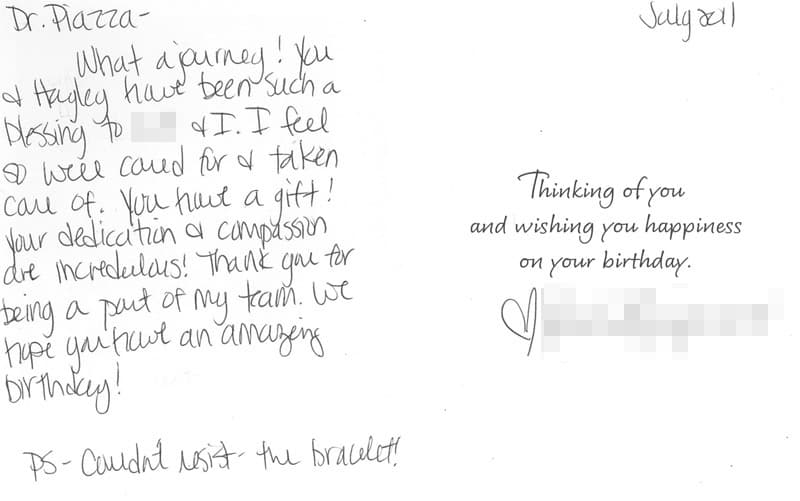 Dr. Piazza-
What a journey! You
& Hagley have been such a
blessing to & I. I feel
so well cared for & taken
care of. You have a gift!
Your dedication & compassion
are incredulous! Thank you for
being a part of my team. We
hope you have an amazing
birthday!
PS- Couldn't resist the bracelet!
July 2011
Thinking of you
and wishing you happiness
on your birthday.